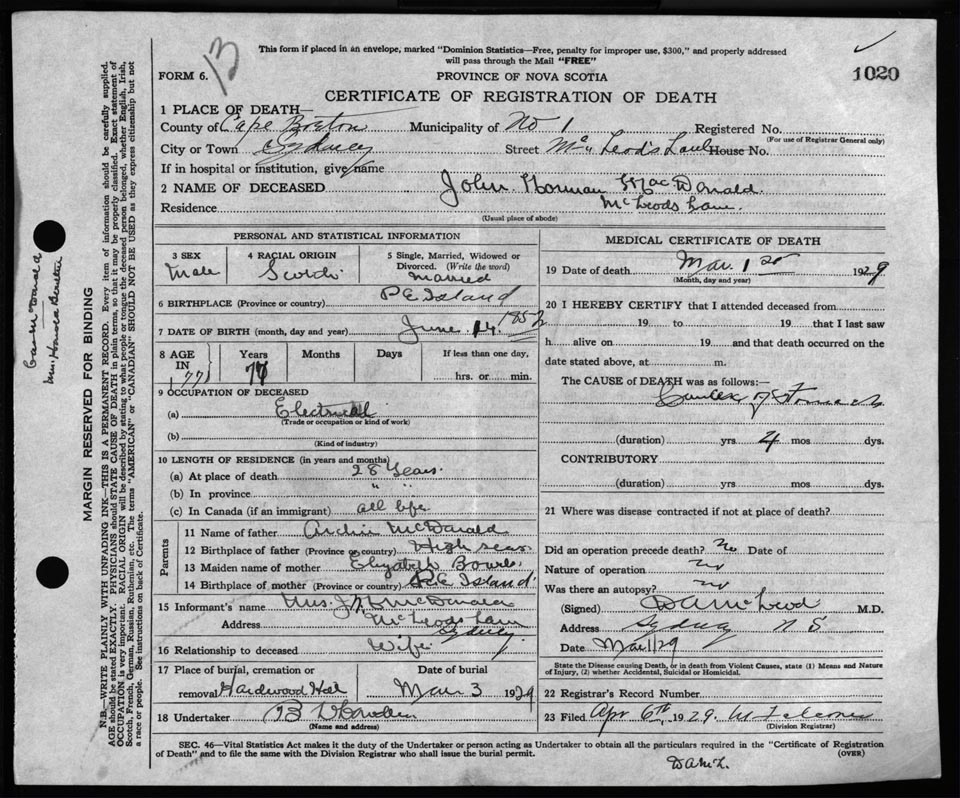 13
This form if placed in an envelope, marked "Dominion Statistics—Free, penalty for improper use, $300," and properly addressed
will pass through the Mail "FREE"
FORM 6.
PROVINCE OF NOVA SCOTIA
1020
CERTIFICATE OF REGISTRATION OF DEATH
1 PLACE OF DEATH—
County of Cape Breton Municipality of No 1 Registered No.
(For use of Registrar General only)
City or Town Sydney Street McLeod's Lane House No.
If in hospital or institution, give name
2 NAME OF DECEASED John Norman MacDonald
Residence McLeods Lane
(Usual place of abode)
PERSONAL AND STATISTICAL INFORMATION
3 SEX Male
4 RACIAL ORIGIN Scotch
5 Single, Married, Widowed or
Divorced. (Write the word)
Married
6 BIRTHPLACE (Province or country) P E Island
7 DATE OF BIRTH (month, day and year) June 14 1852
8 AGE IN 77 Years 77 Months Days If less than one day,
hrs. or min.
9 OCCUPATION OF DECEASED
(a) Electrical
(Trade or occupation or kind of work)
(b)
(Kind of industry)
10 LENGTH OF RESIDENCE (in years and months)
(a) At place of death 28 Years
(b) In province " "
(c) In Canada (if an immigrant) all life
Parents
11 Name of father Archie McDonald
12 Birthplace of father (Province or country) High seas
13 Maiden name of mother Elizabeth
14 Birthplace of mother (Province or country) P E Island
15 Informant's name Mrs. J N McDonald
Address McLeods Lane
Sydney
16 Relationship to deceased Wife
17 Place of burial, cremation or
removal Hardwood Hill
Date of burial
Mar 3 1929
18 Undertaker
(Name and address)
MEDICAL CERTIFICATE OF DEATH
19 Date of death Mar 1st 1929
(Month, day and year)
20 I HEREBY CERTIFY that I attended deceased from
19 to 19 that I last saw
h alive on 19 and that death occurred on the
date stated above, at m.
The CAUSE OF DEATH was as follows:—
Cancer of Stomach
(duration) yrs 4 mos dys.
CONTRIBUTORY
(duration) yrs mos dys.
21 Where was disease contracted if not at place of death?
Did an operation precede death? no Date of
Nature of operation no
Was there an autopsy? no
(Signed) D A McLeod M.D.
Address Sydney N S
Date Mar 1/29
State the Disease causing Death, or in death from Violent Causes, state (1) Means and Nature
of Injury, (2) whether Accidental, Suicidal or Homicidal.
22 Registrar's Record Number
23 Filed Apr 6th, 1929
(Division Registrar)
SEC. 46—Vital Statistics Act makes it the duty of the Undertaker or person acting as Undertaker to obtain all the particulars required in the "Certificate of Registration
of Death" and to file the same with the Division Registrar who shall issue the burial permit.
(OVER)
D A McL.
MARGIN RESERVED FOR BINDING
N.B.—WRITE PLAINLY WITH UNFADING INK—THIS IS A PERMANENT RECORD. Every item of information should be carefully supplied.
AGE should be stated EXACTLY. PHYSICIANS should STATE CAUSE OF DEATH in plain terms, so that it may be properly classified. Exact statement of
OCCUPATION is very important. RACIAL ORIGIN will be described by stating to what people or tongue the deceased person belonged, whether English, Irish,
Scotch, French, German, Russian, Ruthenian, etc. The terms "AMERICAN" or "CANADIAN" SHOULD NOT BE USED as they express citizenship but not
a race or people. See instructions on back of Certificate.